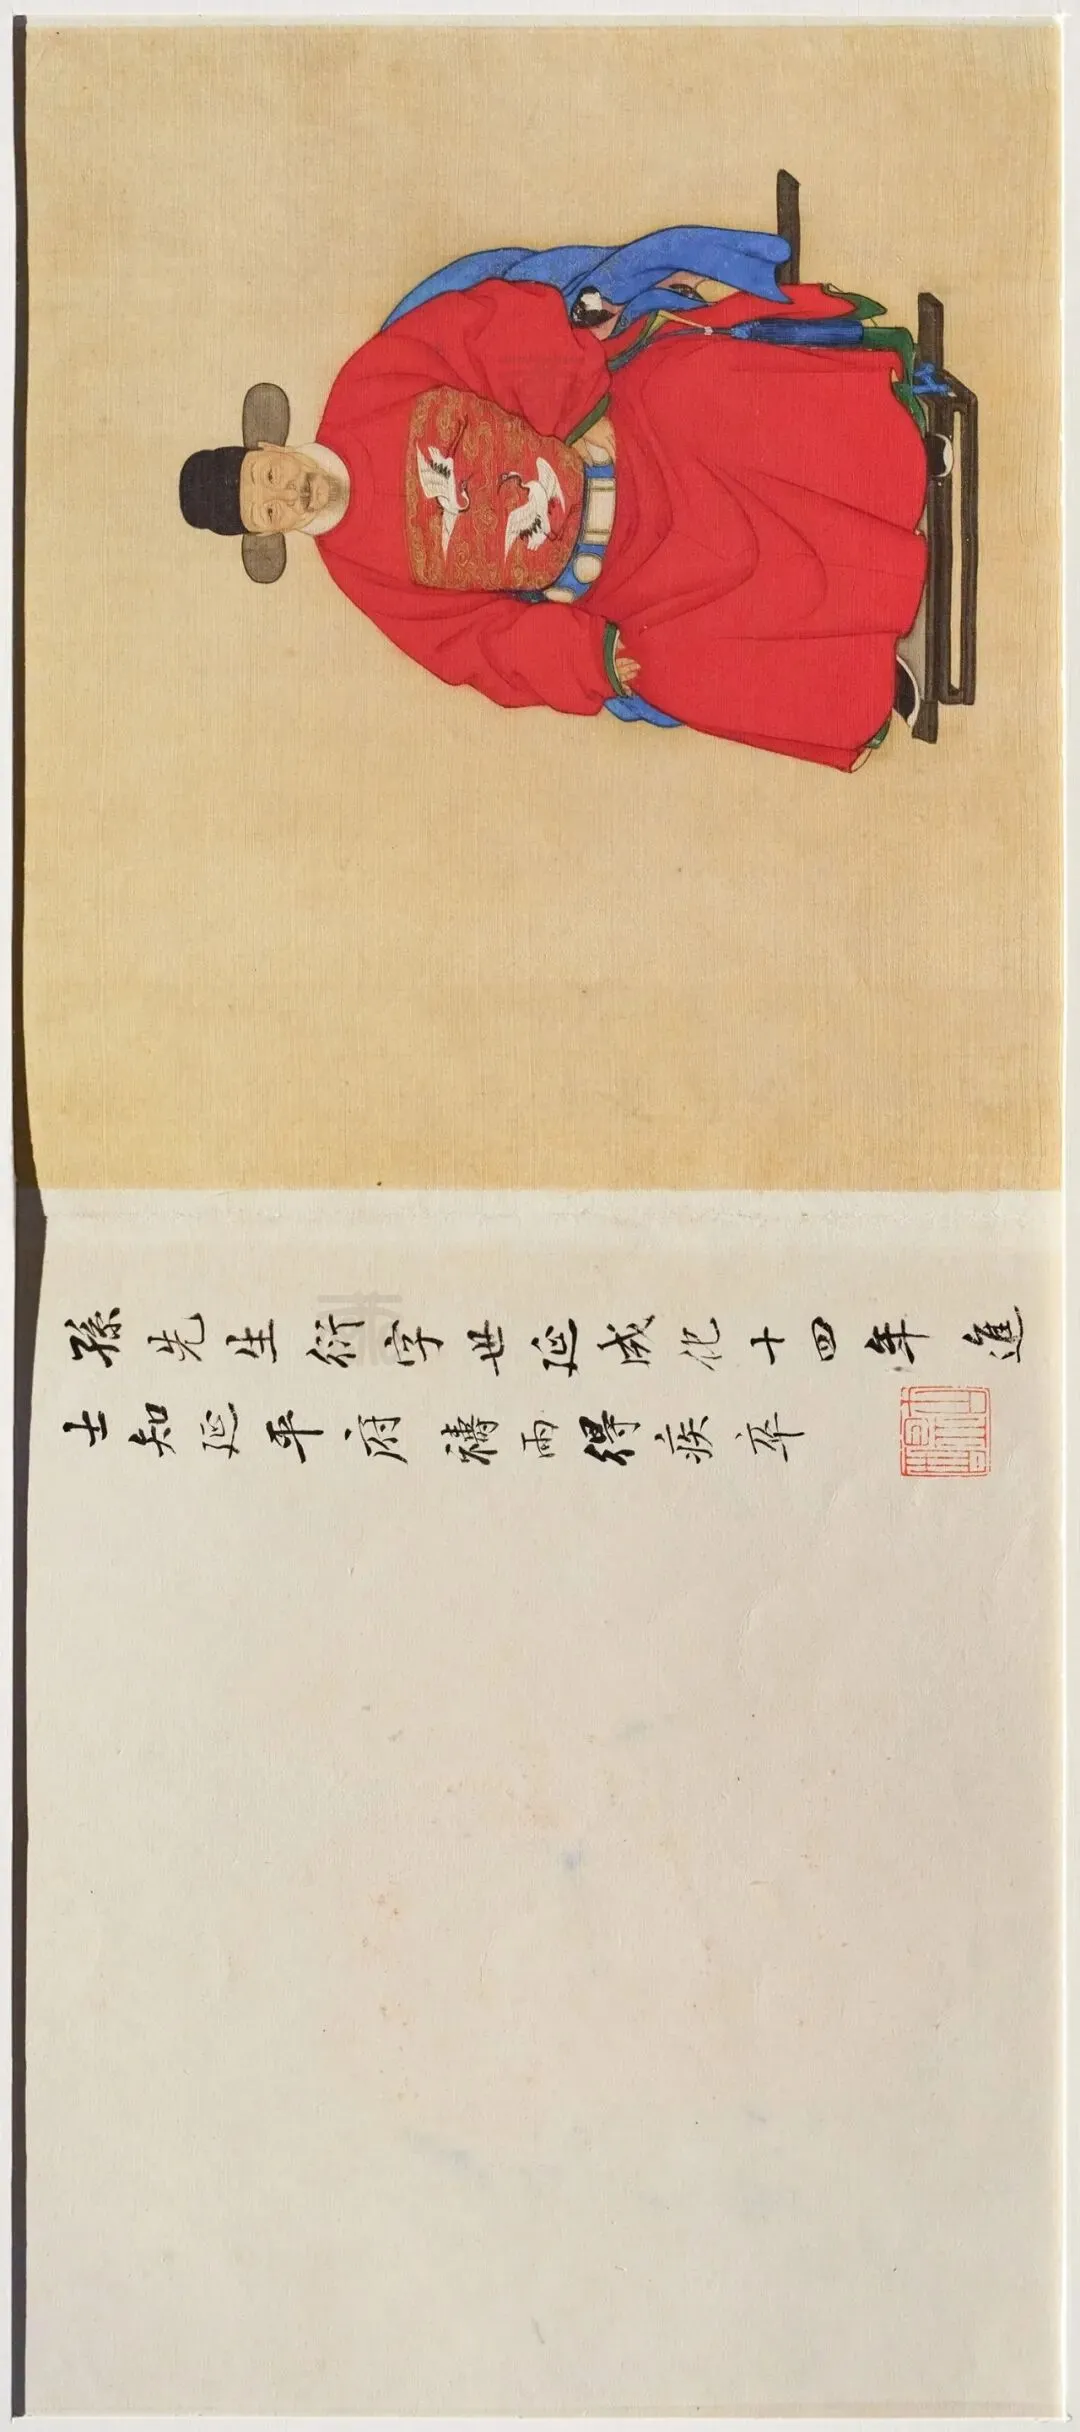 孫先生衍字世延成化十四年進
士知延平府禱雨得疾卒